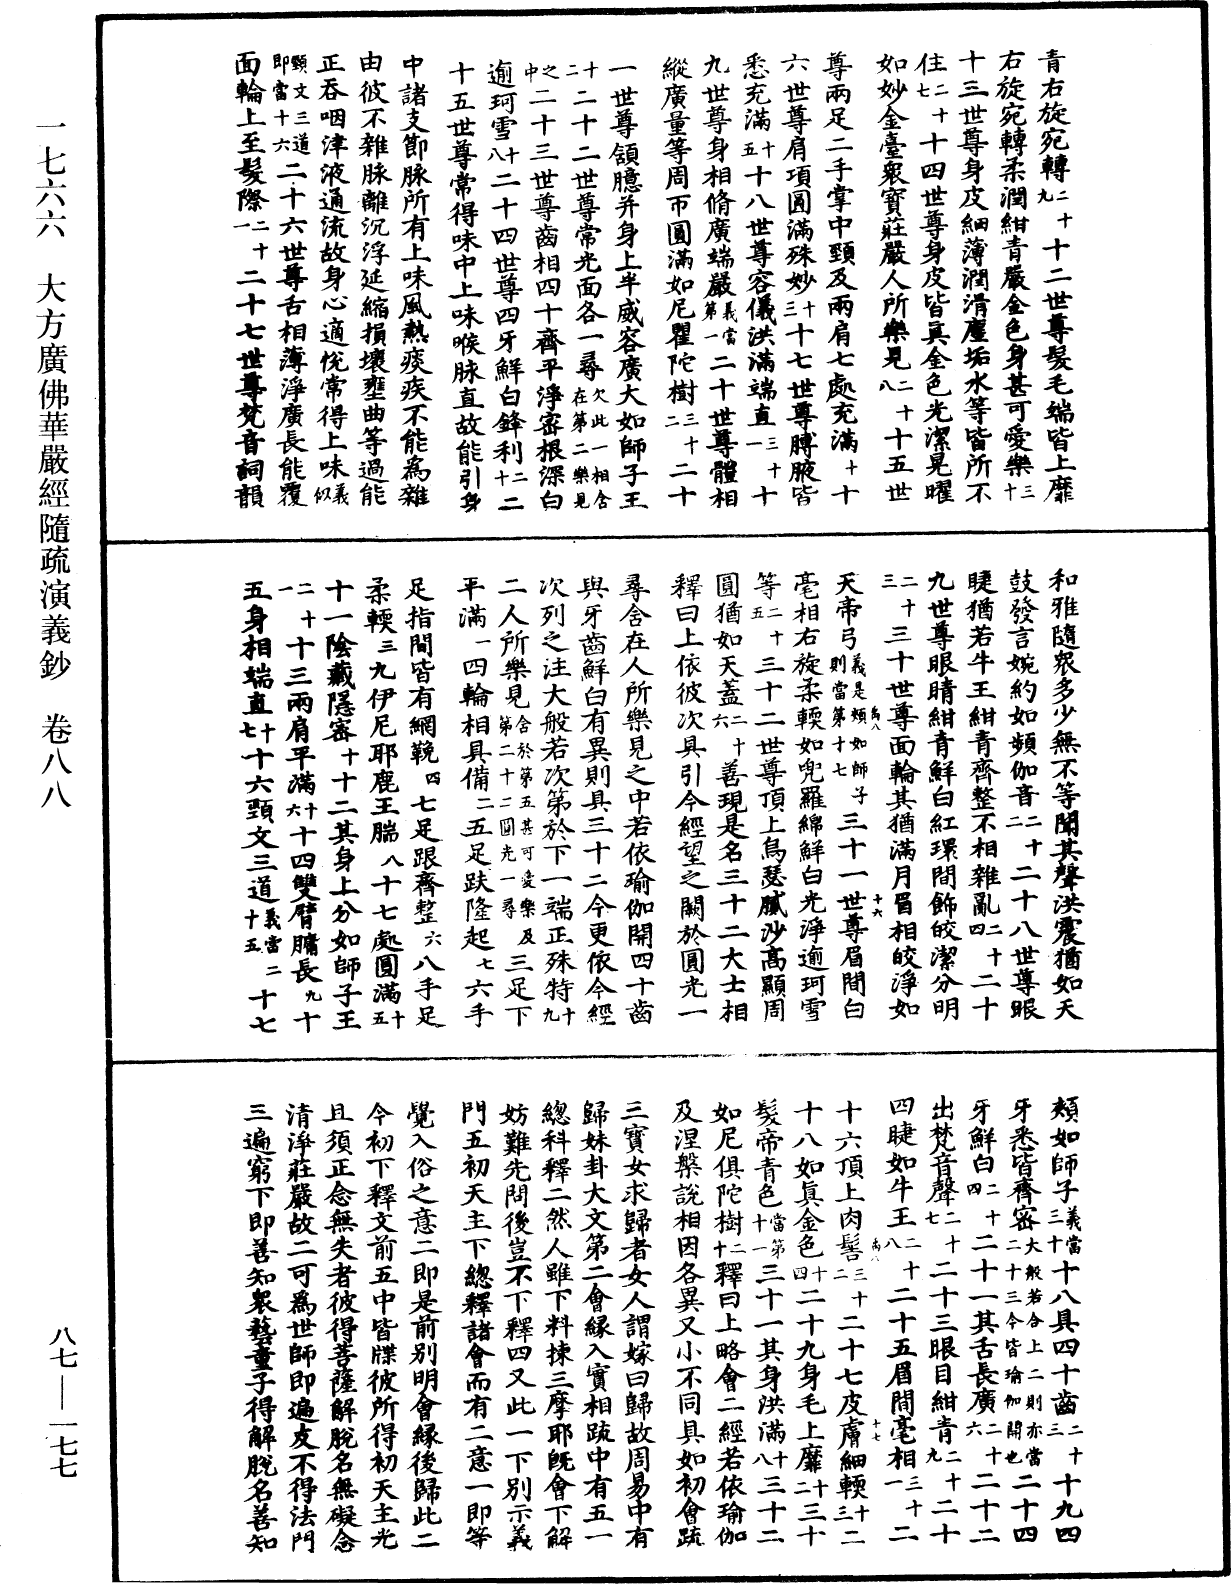 青右旋宛轉二十九十二世尊髮毛端皆上靡
右旋宛轉柔潤紺青嚴金色身甚可愛樂三十
十三世尊身皮細薄潤滑塵垢水等皆所不
住二十七十四世尊身皮皆真金色光潔晃曜
如妙金臺眾寶莊嚴人所樂見二十八十五世
尊兩足二手掌中頸及兩肩七處充滿十十
六世尊肩項圓滿殊妙十三十七世尊膊腋皆
悉充滿十五十八世尊容儀洪滿端直三十一十
九世尊身相脩廣端嚴義當第一二十世尊體相
縱廣量等周帀圓滿如尼瞿陀樹三十二二十
一世尊頷臆并身上半威容廣大如師子王
十二十二世尊常光面各一尋欠此一相含在第二樂見
之中二十三世尊齒相四十齊平淨密根深白
逾珂雪十八二十四世尊四牙鮮白鋒利二十二
十五世尊常得味中上味喉脉直故能引身
中諸支節脉所有上味風熱痰疾不能為雜
由彼不雜脉離沉浮延縮損壞壅曲等過能
正吞咽津液通流故身心適悅常得上味義似
頸文三道即當十六二十六世尊舌相薄淨廣長能覆
面輪上至髮際二十一二十七世尊梵音詞韻
和雅隨眾多少無不等聞其聲洪震猶如天
鼓發言婉約如頻伽音二十二二十八世尊眼
睫猶若牛王紺青齊整不相雜亂二十四二十
九世尊眼睛紺青鮮白紅環間飾皎潔分明
二十三三十世尊面輪其猶滿月眉相皎淨如
天帝弓義是頰如師子則當第十七三十一世尊眉間白
毫相右旋柔輭如兜羅綿鮮白光淨逾珂雪
等二十五三十二世尊頂上烏瑟膩沙高顯周
圓猶如天蓋二十六善現是名三十二大士相
釋曰上依彼次具引今經望之闕於圓光一
尋含在人所樂見之中若依瑜伽開四十齒
與牙齒鮮白有異則具三十二今更依今經
次列之注大般若次第於下一端正殊特十九
二人所樂見含於第五甚可愛樂及第二十二圓光一尋三足下
平滿一四輪相具備二五足趺隆起七六手
足指間皆有網鞔四七足跟齊整六八手足
柔輭三九伊尼耶鹿王腨八十七處圓滿十五
十一陰藏隱密十十二其身上分如師子王
二十一十三兩肩平滿十六十四雙臂𦟛長九十
五身相端直十七十六頸文三道義當二十五十七
頰如師子義當三十十八具四十齒二十三十九四
牙悉皆齊密大般若合上二則亦當二十三今皆瑜伽開也二十四
牙鮮白二十四二十一其舌長廣二十六二十二
出梵音聲二十七二十三眼目紺青二十九二十
四睫如牛王二十八二十五眉間毫相三十一二
十六頂上肉髻三十二二十七皮膚細輭十三二
十八如真金色十四二十九身毛上靡十二三十
髮帝青色當第十一三十一其身洪滿十八三十二
如尼俱陀樹二十釋曰上略會二經若依瑜伽
及涅槃說相因各異又小不同具如初會疏
三寶女求歸者女人謂嫁曰歸故周易中有
歸妹卦大文第二會緣入實相疏中有五一
總科釋二然人雖下料揀三摩耶既會下解
妨難先問後豈不下釋四又此一下別示義
門五初天主下總釋諸會而有二意一即等
覺入俗之意二即是前別明會緣後歸此二
今初下釋文前五中皆牒彼所得初天主光
且須正念無失者彼得菩薩解脫名無礙念
清淨莊嚴故二可為世師即遍皮不得法門
三遍窮下即善知眾藝童子得解脫名善知
一七六六　大方廣佛華嚴經隨疏演義鈔　卷八八
八七——一七七